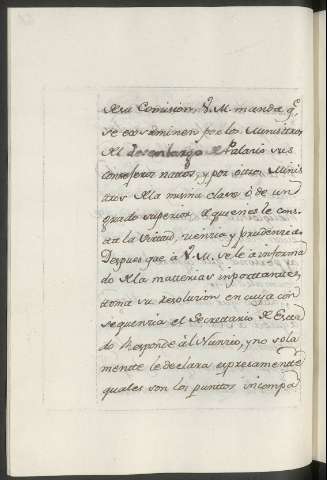 de su Comision, V. M. manda q.e
se ecsaminen por los Ministros
del desembargo de Palacio sus
consejeros natos, y por otros Minis
tros de la misma clase, ó de un
grado superior, á quienes le cons
ta la virtud, ciencia y prudencia.
Despues que à V. M. se le à informa
do de las matterias inporttantes,
ttoma su resolucion en cuya con
sequencia el Secrettario de Esta
do Responde al Nuncio, y no sola
mentte le declara espresamentte
quales son los punttos incompa